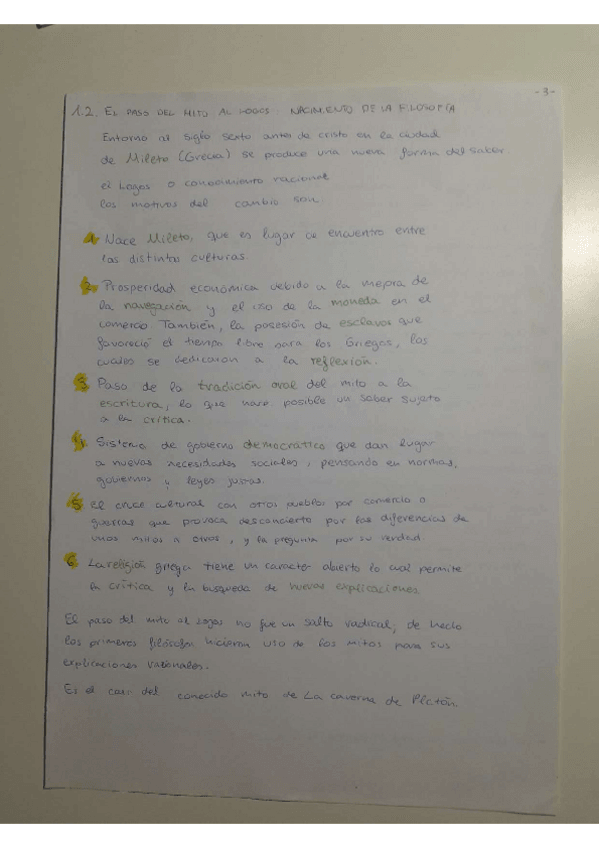 -3-
1.2. EL PASO DEL MITO AL LOGOS NACIMIENTO DE LA FILOSOFÍA
Entorno al siglo sexto antes de cristo en la ciudad
de Mileto (Grecia) se produce una nueva forma del saber
el Logos o conocimiento racional
los motivos del cambio son
1. Nace Mileto, que es lugar de encuentro entre
las distintas culturas.
2. Prosperidad económica debido a la mejora de
la navegación y el uso de la moneda en el
comercio. También, la posesión de esclavos que
favoreció el tiempo libre para los Griegos, los
cuales se dedicaron a la reflexión.
3 Paso de la tradición oral del mito a la
escritura, lo que hace posible un saber sujeto
a la crítica.
4. Sistema de gobierno democrático que dan lugar
a nuevas necesidades sociales, pensando en normas,
gobiernos y leyes justas.
5 el cruce cultural con otros pueblos por comercio o
guerras que provoca desconcierto por las diferencias de
unos mitos a otros, y la pregunta por su verdad
6 La religión griega tiene un caracter abierto lo cual permite
la crítica y la busqueda de nuevas explicaciones
El paso del mito al logos no fue un salto radical, de hecho
los primeros filósofos hicieron uso de los mitos para sus
explicaciones racionales.
Es el caso del conocido mito de La caverna de Platón.